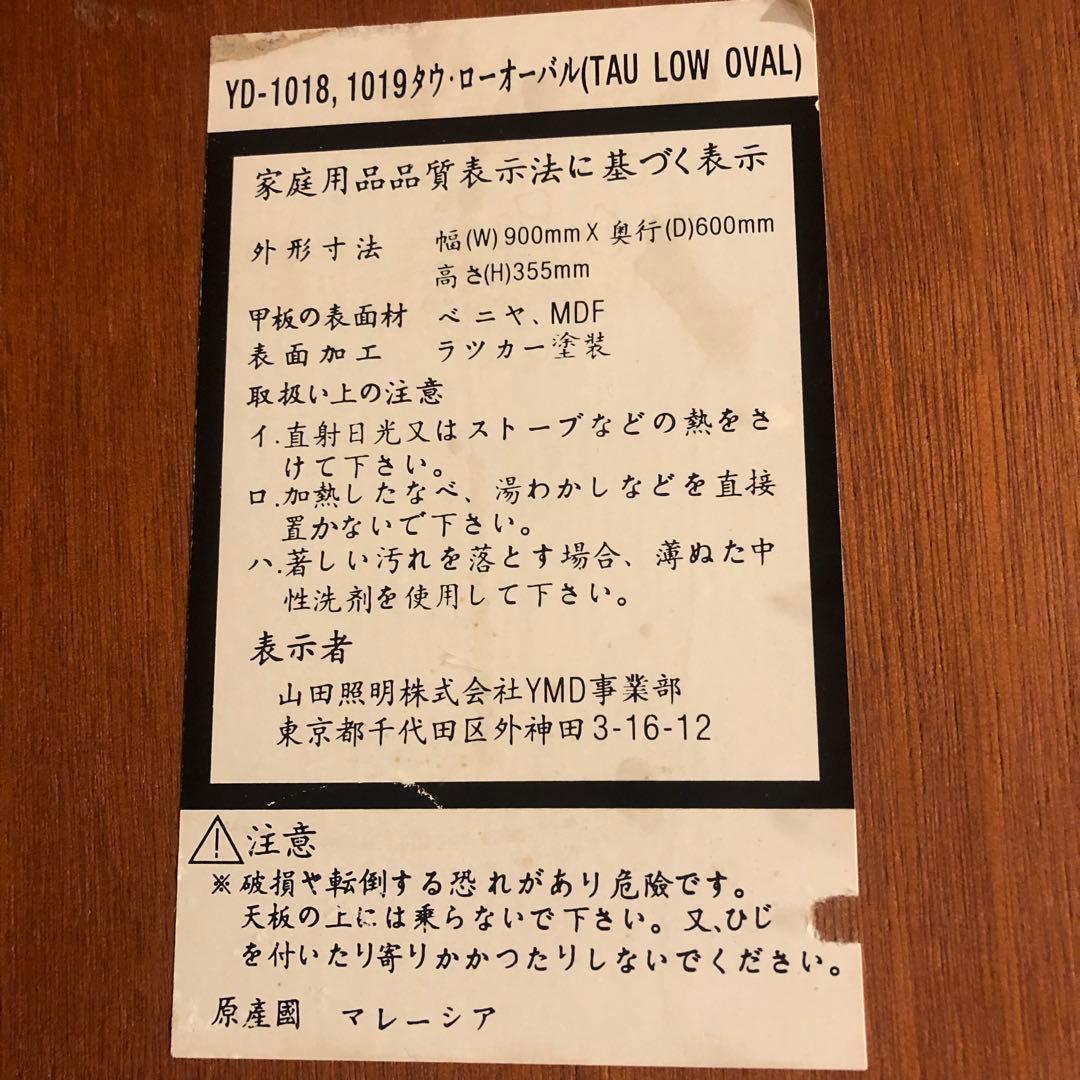 YD-1018, 1019タウ・ローオーバル(TAU LOW OVAL)
家庭用品品質表示法に基づく表示
外形寸法 幅(W) 900mm X 奥行(D)600mm
高さ(H)355mm
甲板の表面材 ベニヤ、MDF
表面加工 ラツカー塗装
取扱い上の注意
イ.直射日光又はストーブなどの熱をさ
けて下さい。
ロ.加熱したなべ、湯わかしなどを直接
置かないで下さい。
ハ.著しい汚れを落とす場合、薄ぬた中
性洗剤を使用して下さい。
表示者
山田照明株式会社YMD事業部
東京都千代田区外神田3-16-12
⚠注意
※破損や転倒する恐れがあり危險です。
天板の上には乗らないで下さい。又、ひじ
を付いたり寄りかかつたりしないでください。
原産國 マレーシア